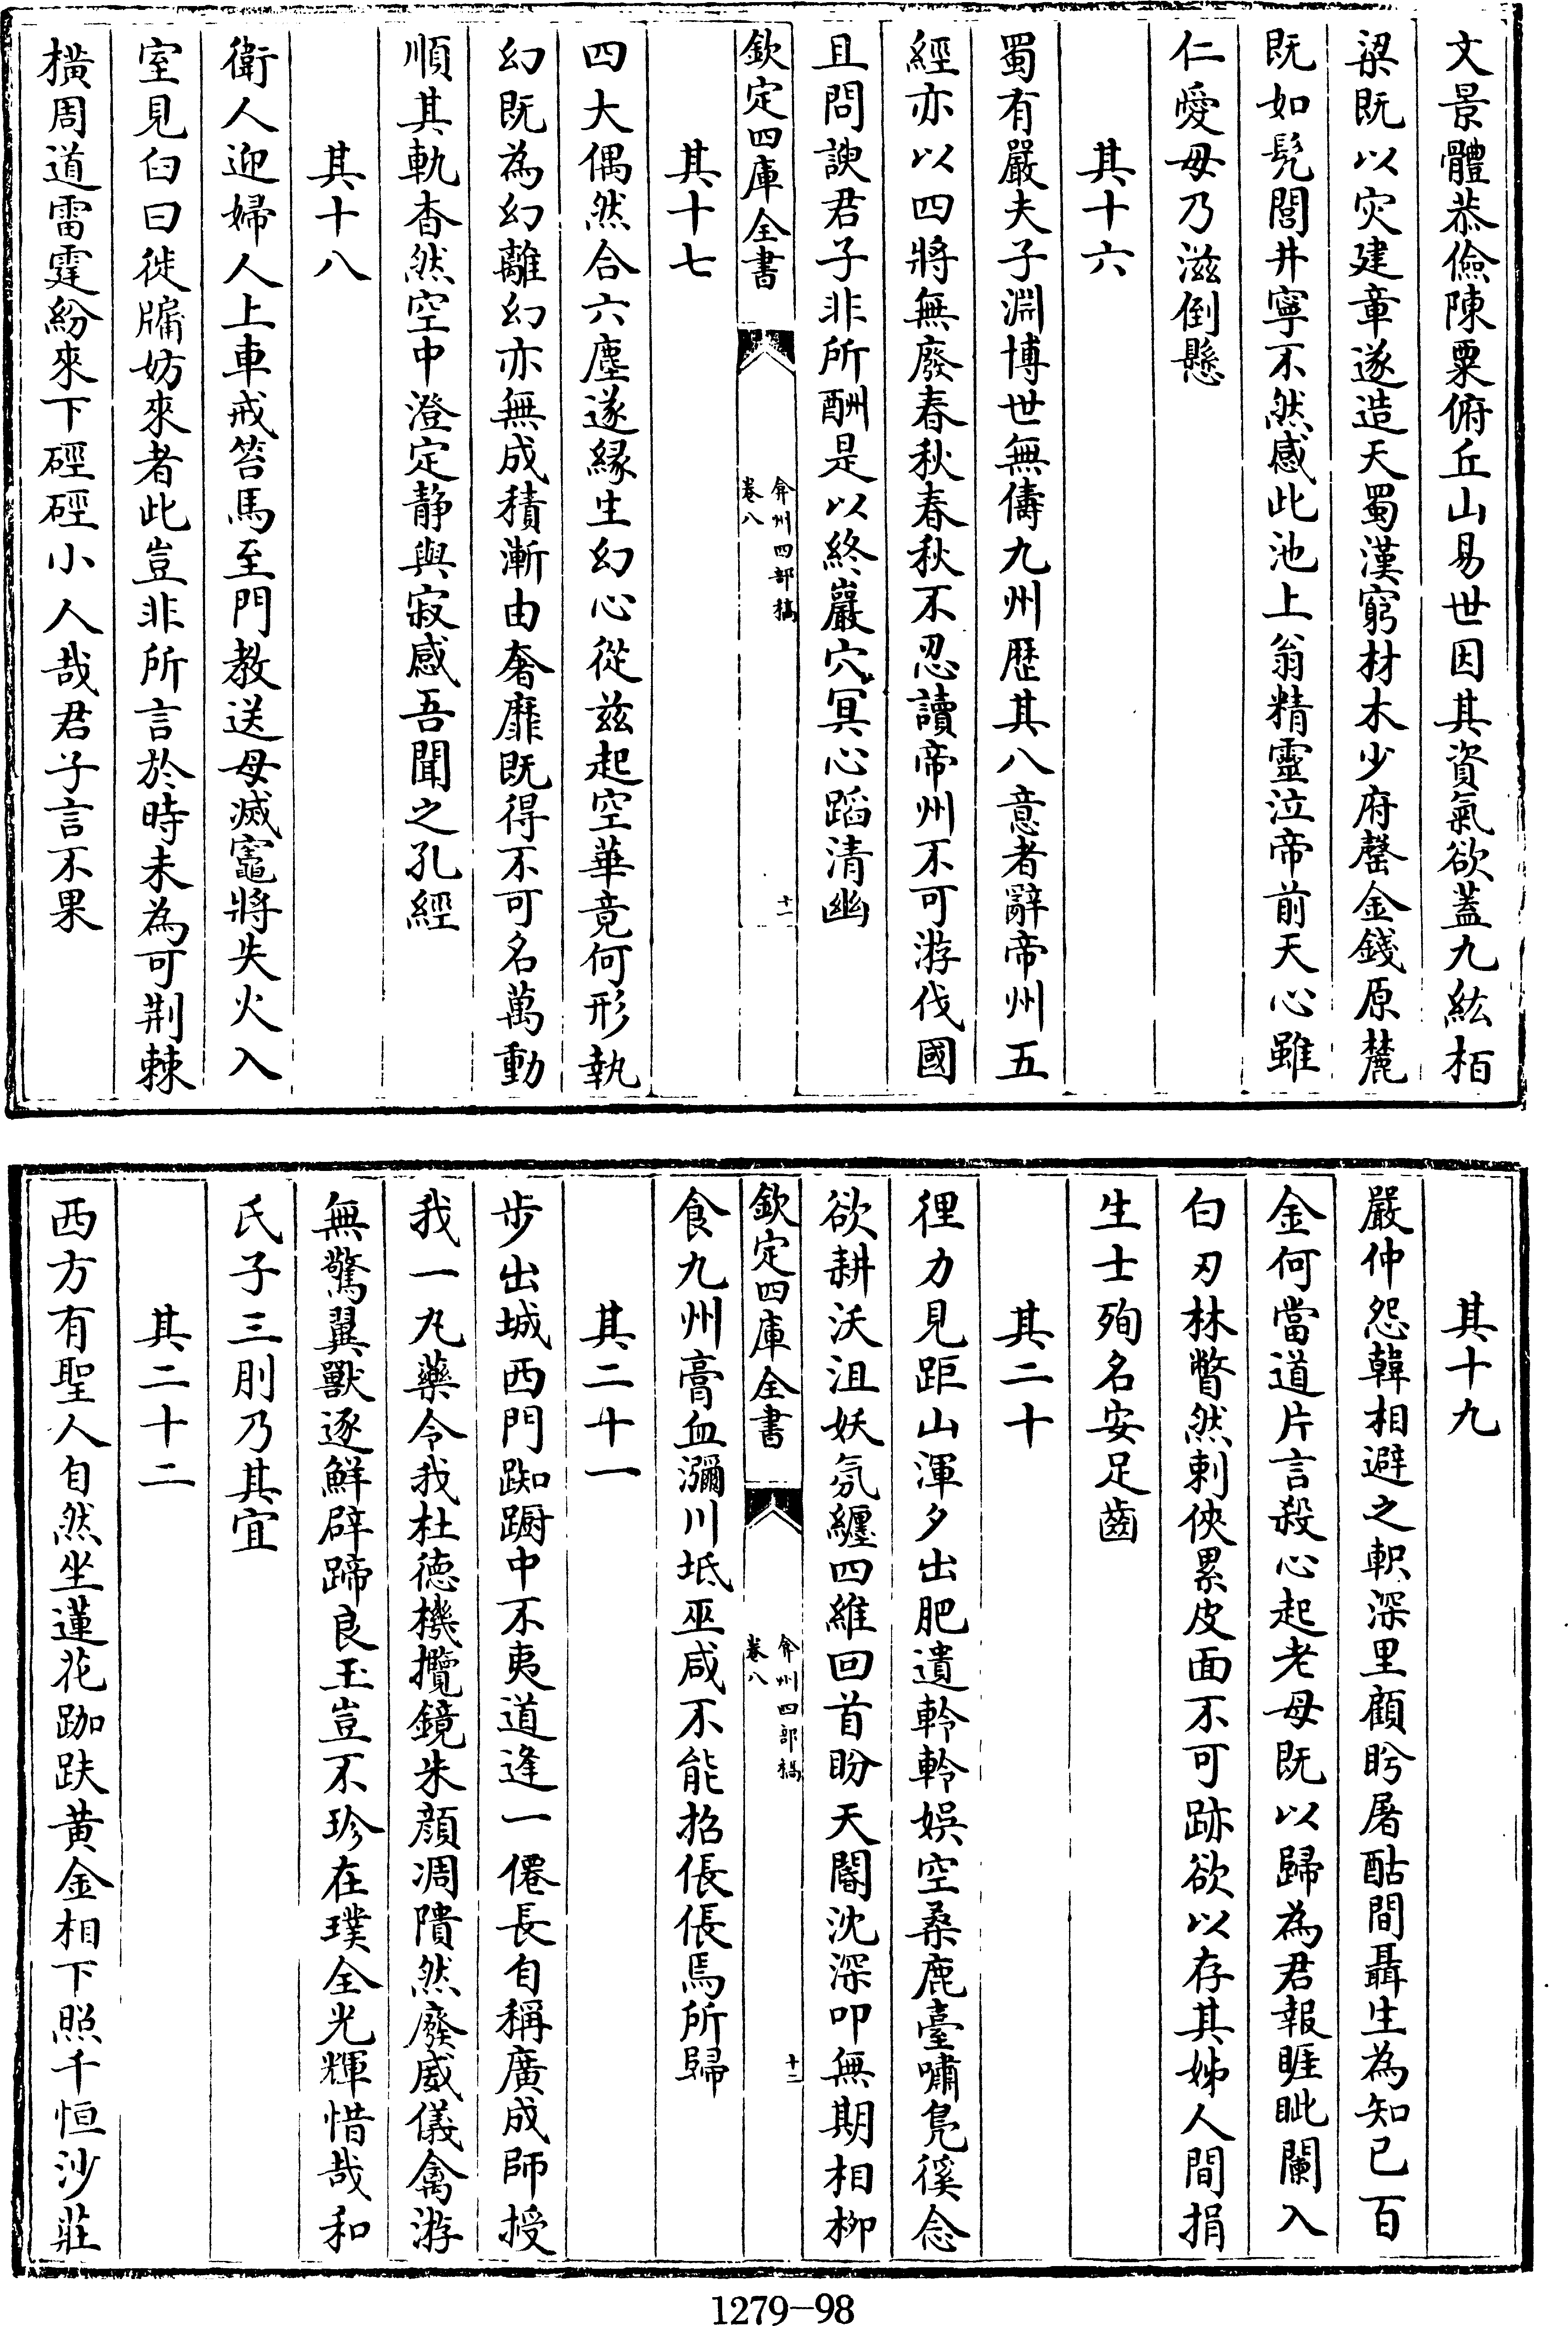 文景體恭儉陳粟俯丘山易世因其資氣欲蓋九紘栢
梁既以灾建章遂造天蜀漢窮材木少府罄金錢原麓
既如髡閭井寧不然感此池上翁精靈泣帝前天心雖
仁愛毋乃滋倒懸
其十六
蜀有嚴夫子淵博世無儔九州歴其八意者辭帝州五
經亦以四將無廢春秋春秋不忍讀帝州不可游伐國
且問諛君子非所酬是以終巖穴冥心蹈清幽
欽定四庫全書
弇州四部稿
卷八
十一
其十七
四大偶然合六塵遂緣生幻心從兹起空華竟何形執
幻既為幻離幻亦無成積漸由奢靡既得不可名萬動
順其軌杳然空中澄定静與寂感吾聞之孔經
其十八
衛人迎婦人上車戒笞馬至門教送母滅竈將失火入
室見臼曰徙牖妨來者此豈非所言於時未為可荆棘
橫周道雷霆紛來下硜硜小人哉君子言不果
其十九
嚴仲怨韓相避之軹深里顧盻屠酤間聶生為知已百
金何當道片言殺心起老母既以歸為君報睚眦闌入
白刃林瞥然刺俠累皮面不可跡欲以存其姊人間捐
生士殉名安足齒
其二十
徑力見距山渾夕出肥遺軨軨娛空桑鹿臺嘯鳧徯念
欲耕沃沮妖氛纒四維回首盼天閽沈深叩無期相柳
欽定四庫全書
弇州四部稿
卷八
十二
食九州膏血瀰川坻巫咸不能招倀倀焉所歸
其二十一
步出城西門踟蹰中不夷道逢一僊長自稱廣成師授
我一丸藥令我杜德機攬鏡朱顔凋隤然廢威儀禽游
無驚翼獸逐鮮辟蹄良玉豈不珍在璞全光輝惜哉和
氏子三刖乃其宜
其二十二
西方有聖人自然坐蓮花跏趺黄金相下照千恒沙莊
1279—98